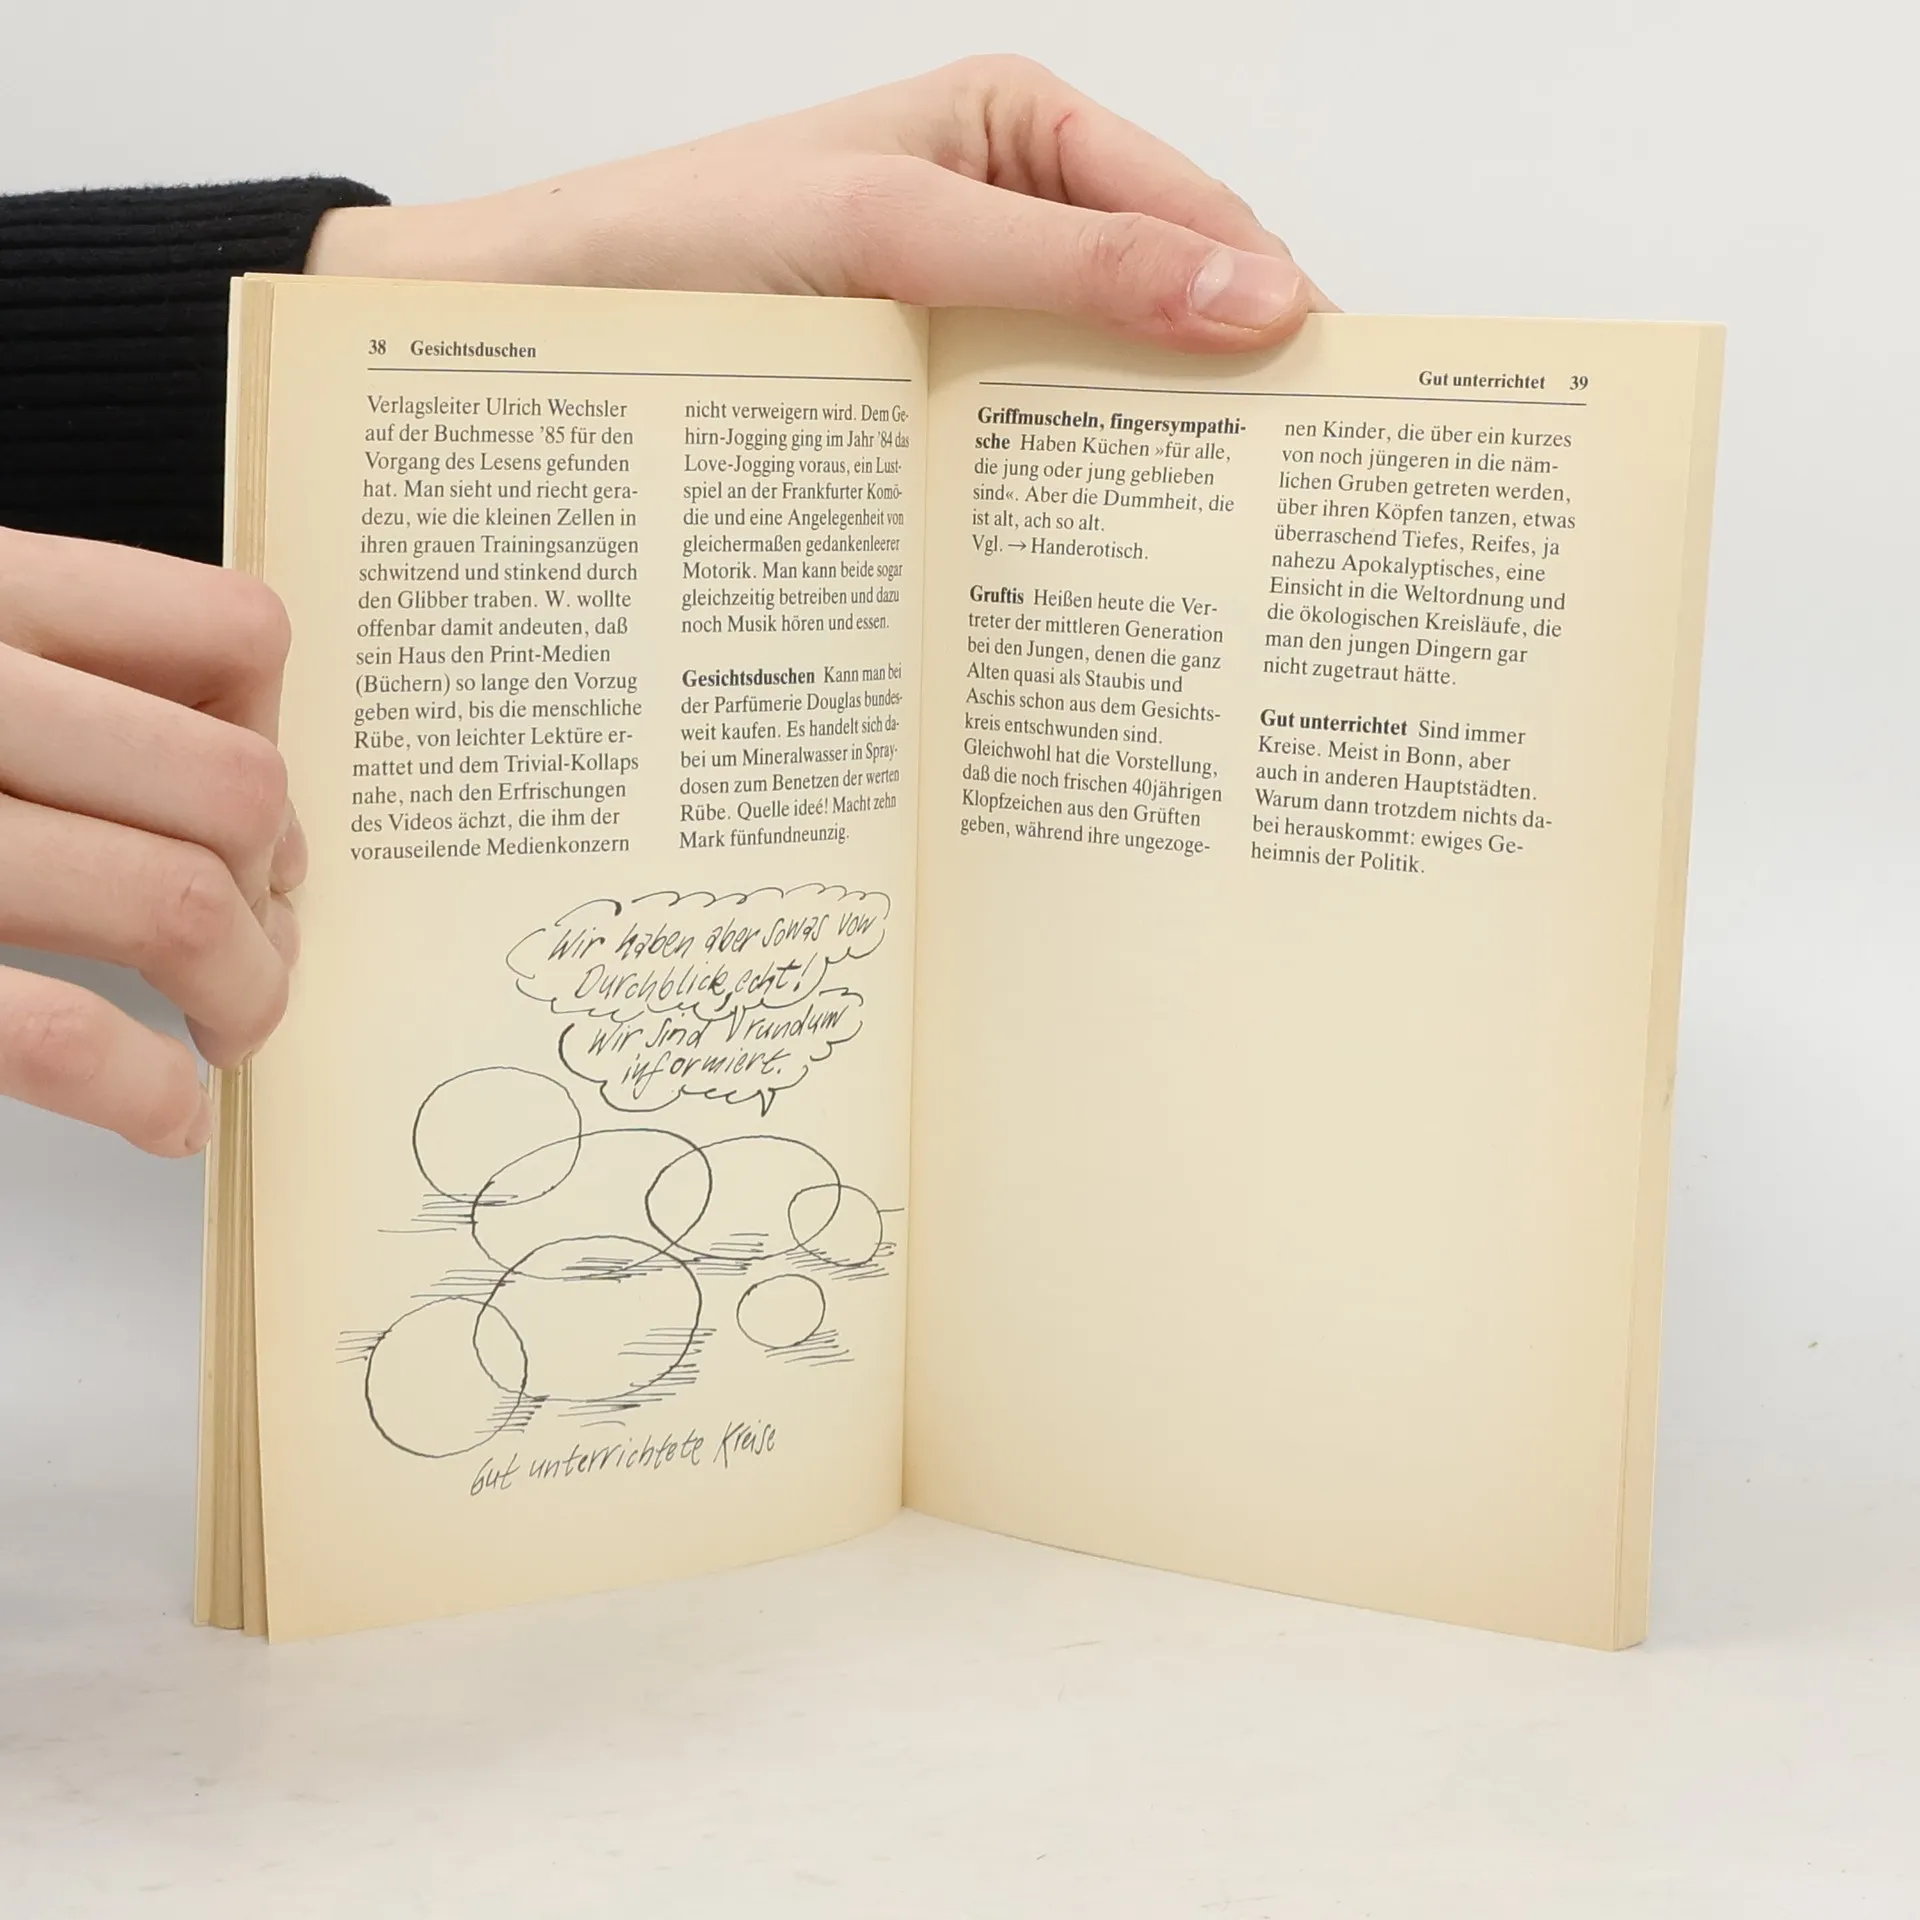 38 Gesichtsduschen
Verlagsleiter Ulrich Wechsler
auf der Buchmesse ’85 für den
Vorgang des Lesens gefunden
hat. Man sieht und riecht gera-
dezu, wie die kleinen Zellen in
ihren grauen Trainingsanzügen
schwitzend und stinkend durch
den Glibber traben. W. wollte
offenbar damit andeuten, daß
sein Haus den Print-Medien
(Büchern) so lange den Vorzug
geben wird, bis die menschliche
Rübe, von leichter Lektüre er-
mattet und dem Trivial-Kollaps
nahe, nach den Erfrischungen
des Videos ächzt, die ihm der
vorauseilende Medienkonzern
nicht verweigern wird. Dem Ge-
hirn-Jogging ging im Jahr ’84 das
Love-Jogging voraus, ein Lust-
spiel an der Frankfurter Komö-
die und eine Angelegenheit von
gleichermaßen gedankenleerer
Motorik. Man kann beide sogar
gleichzeitig betreiben und dazu
noch Musik hören und essen.
Gesichtsduschen Kann man bei
der Parfümerie Douglas bundes-
weit kaufen. Es handelt sich da-
bei um Mineralwasser in Spray-
dosen zum Benetzen der werten
Rübe. Quelle ideé! Macht zehn
Mark fünfundneunzig.
Wir haben aber sowas von
Durchblick, echt!
Wir sind rundum
informiert.
Gut unterrichtete Kreise
Gut unterrichtet 39
Griffmuscheln, fingersympathi-
sche Haben Küchen »für alle,
die jung oder jung geblieben
sind«. Aber die Dummheit, die
ist alt, ach so alt.
Vgl. → Handerotisch.
Gruftis Heißen heute die Ver-
treter der mittleren Generation
bei den Jungen, denen die ganz
Alten quasi als Staubis und
Aschis schon aus dem Gesichts-
kreis entschwunden sind.
Gleichwohl hat die Vorstellung,
daß die noch frischen 40jährigen
Klopfzeichen aus den Grüften
geben, während ihre ungezoge-
nen Kinder, die über ein kurzes
von noch jüngeren in die näm-
lichen Gruben getreten werden,
über ihren Köpfen tanzen, etwas
überraschend Tiefes, Reifes, ja
nahezu Apokalyptisches, eine
Einsicht in die Weltordnung und
die ökologischen Kreisläufe, die
man den jungen Dingern gar
nicht zugetraut hätte.
Gut unterrichtet Sind immer
Kreise. Meist in Bonn, aber
auch in anderen Hauptstädten.
Warum dann trotzdem nichts da-
bei herauskommt: ewiges Ge-
heimnis der Politik.